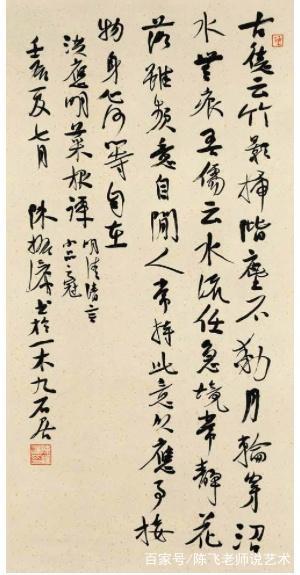 古德云竹影掃階塵不動月輪穿沼
水無痕吾儒云水流任急境常靜花
落雖頻意自閒人常持此意以應事接
物身心何等自在
洪應明菜根譚
明清清言
小品之冠
壬辰夏七月 陳振濂書於一木九石居
百家号/陈飞老师说艺术